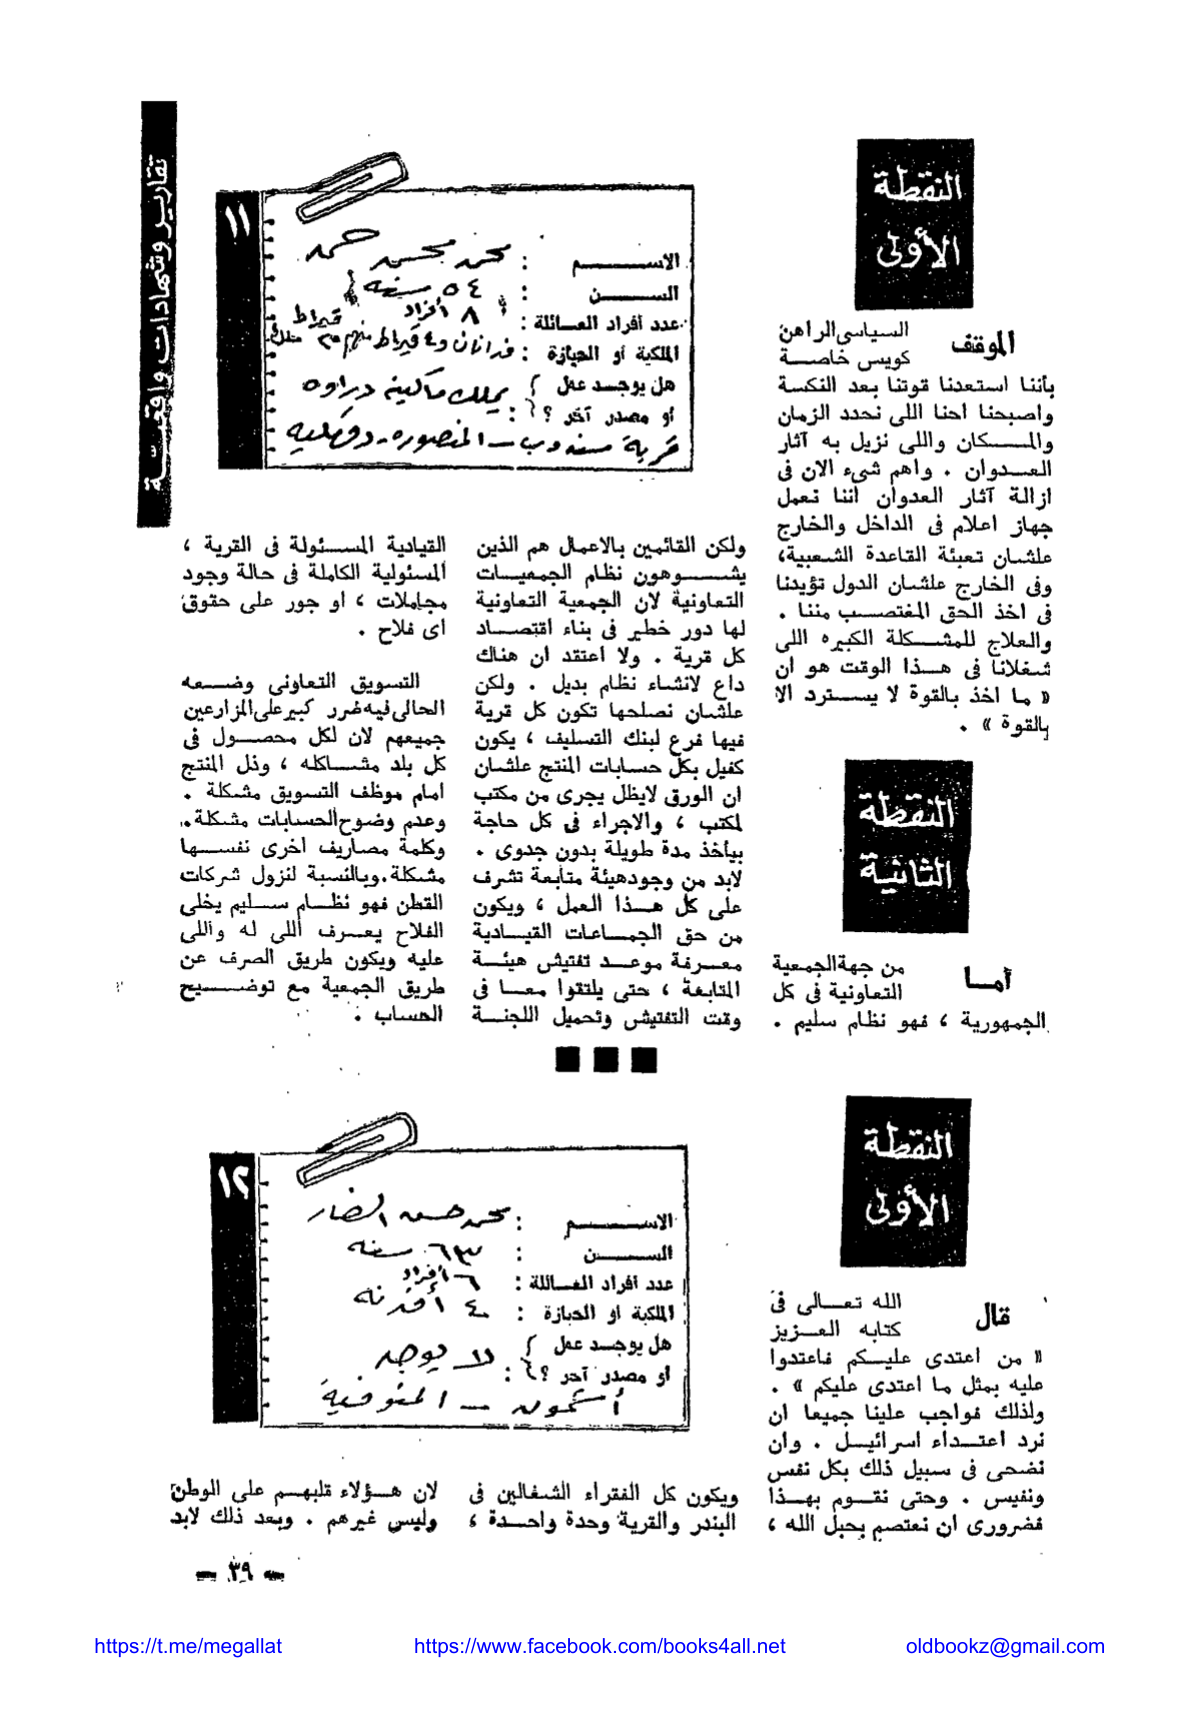 تقارير وشهادات واقعية
١١
الاسم : محمد محسن حمد
السن : ٥٤ سنة
عدد أفراد العائلة : ٨ أفراد
الملكية أو الحيازة : فدانان و٤ قيراط منهم ٢٥ قيراط ملك
هل يوجد عمل
أو مصدر آخر ؟ : يملك ماكينة دراوه
قرية سندوب - المنصورة - دقهلية
النقطة
الأولى
الموقف السياسى الراهن
كويس خاصة
بأننا استعدنا قوتنا بعد النكسة
واصبحنا احنا اللى نحدد الزمان
والمكان واللى نزيل به آثار
العدوان . واهم شىء الان فى
ازالة آثار العدوان اننا نعمل
جهاز اعلام فى الداخل والخارج
علشان تعبئة القاعدة الشعبية،
وفى الخارج علشان الدول تؤيدنا
فى اخذ الحق المغتصب مننا .
والعلاج للمشكلة الكبيره اللى
شغلانا فى هذا الوقت هو ان
« ما اخذ بالقوة لا يسترد الا
بالقوة » .
النقطة
الثانية
أما من جهة الجمعية
التعاونية فى كل
الجمهورية ، فهو نظام سليم .
ولكن القائمين بالاعمال هم الذين
يشوهون نظام الجمعيات
التعاونية لان الجمعية التعاونية
لها دور خطير فى بناء اقتصاد
كل قرية . ولا اعتقد ان هناك
داع لانشاء نظام بديل . ولكن
علشان نصلحها تكون كل قرية
فيها فرع لبنك التسليف ، يكون
كفيل بكل حسابات المنتج علشان
ان الورق لايظل يجرى من مكتب
لمكتب ، والاجراء فى كل حاجة
بيأخذ مدة طويلة بدون جدوى .
لابد من وجود هيئة متابعة تشرف
على كل هذا العمل ، ويكون
من حق الجماعات القيادية
معرفة موعد تفتيش هيئة
المتابغة ، حتى يلتقوا معا فى
وقت التفتيش وتحميل اللجنة
القيادية المسئولة فى القرية ،
المسئولية الكاملة فى حالة وجود
مجاملات ، او جور على حقوق
اى فلاح .
التسويق التعاونى وضعه
الحالى فيه ضرر كبير على المزارعين
جميعهم لان لكل محصول فى
كل بلد مشاكله ، وذل المنتج
امام موظف التسويق مشكلة .
وعدم وضوح الحسابات مشكلة .
وكلمة مصاريف اخرى نفسها
مشكلة . وبالنسبة لنزول شركات
القطن فهو نظام سليم يخلى
الفلاح يعرف اللى له واللى
عليه ويكون طريق الصرف عن
طريق الجمعية مع توضيح
الحساب .
١٢
الاسم : محمد حسن الصفار
السن : ٦٣ سنة
عدد أفراد العائلة : ٦ أفراد
الملكية او الحيازة : ٤ أفدنة
هل يوجد عمل
أو مصدر آخر ؟ : لا يوجد
أشمون - المنوفية
النقطة
الأولى
قال الله تعالى فى
كتابه العزيز
« من اعتدى عليكم فاعتدوا
عليه بمثل ما اعتدى عليكم » .
ولذلك فواجب علينا جميعا ان
نرد اعتداء اسرائيل . وان
نضحى فى سبيل ذلك بكل نفس
ونفيس . وحتى نقوم بهذا
فضرورى ان نعتصم بحبل الله ،
ويكون كل الفقراء الشغالين فى
البندر والقرية وحدة واحدة ،
لان هؤلاء قلبهم على الوطن
وليس غيرهم . وبعد ذلك لابد
- ٣٩ -
https://t.me/megallat
https://www.facebook.com/books4all.net
oldbookz@gmail.com